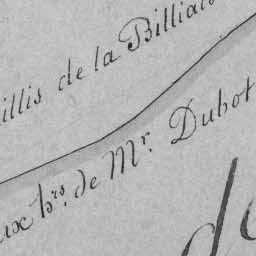 illis de la Billiais
aux hrs. de Mr. Dubot
de